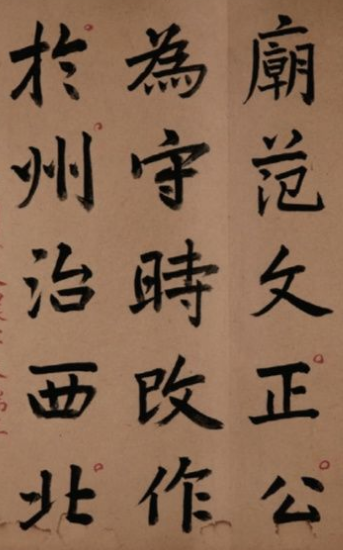 廟范文正公
為守時改作
於州治西北